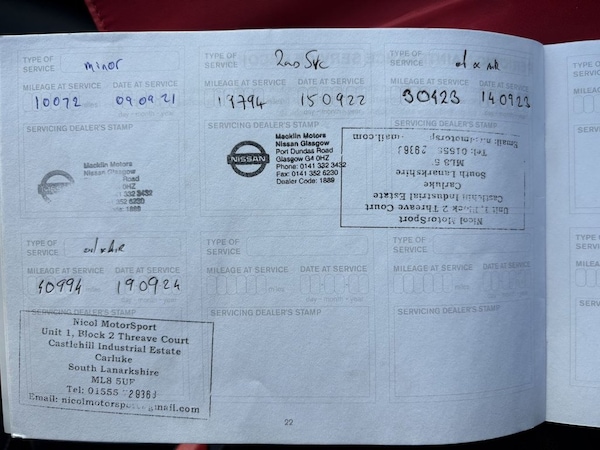 TYPE OF SERVICE minor
MILEAGE AT SERVICE DATE AT SERVICE
10072 miles 090921
SERVICING DEALER'S STAMP
Macklin Motors
Nissan Glasgow
Road
0HZ
332 3432
352 6230
1889
TYPE OF SERVICE 2nd Svc
MILEAGE AT SERVICE DATE AT SERVICE
19794 150922
SERVICING DEALER'S STAMP
NISSAN
Macklin Motors
Nissan Glasgow
Port Dundas Road
Glasgow G4 0HZ
Phone: 0141 332 3432
Fax: 0141 352 6230
Dealer Code: 1889
TYPE OF SERVICE
MILEAGE AT SERVICE DATE AT SERVICE
30423 140923
Nicol MotorSport
Unit 1, Block 2 Threave Court
Castlehill Industrial Estate
Carluke
South Lanarkshire
ML8 5
Tel: 01555 29383
Email:
TYPE OF SERVICE
MILEAGE AT SERVICE DATE AT SERVICE
40994 190924
SERVICING DEALER'S STAMP
Nicol MotorSport
Unit 1, Block 2 Threave Court
Castlehill Industrial Estate
Carluke
South Lanarkshire
ML8 5UF
Tel: 01555 29383
Email:
TYPE OF SERVICE
MILEAGE AT SERVICE DATE AT SERVICE
miles day - month - year
SERVICING DEALER'S STAMP
TYPE OF SERVICE
MILEAGE AT SERVICE DATE AT SERVICE
miles day - month - year
SERVICING DEALER'S STAMP
22